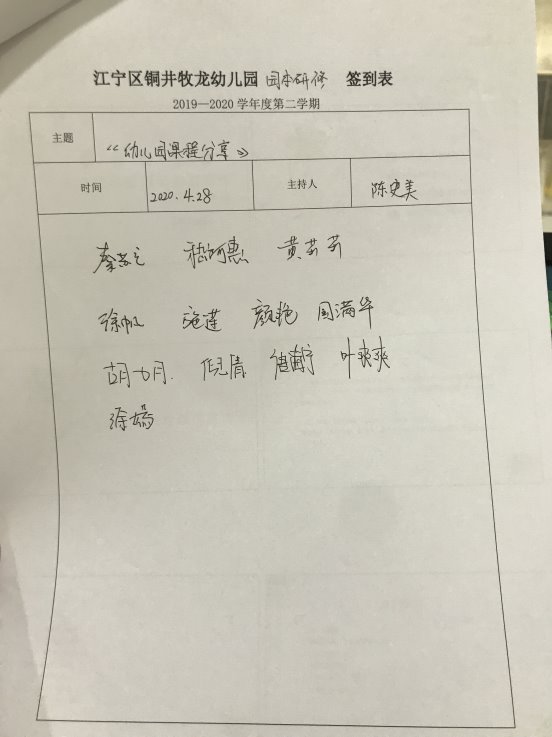 江宁区铜井牧龙幼儿园 园本研修 签到表
2019—2020 学年度第二学期
主题 《幼儿园课程分享》
时间 2020.4.28 主持人 陈史美
黄芬芬
徐帆 施莲 颜艳 周满华
胡七月 倪倩 叶爽爽
徐嫣